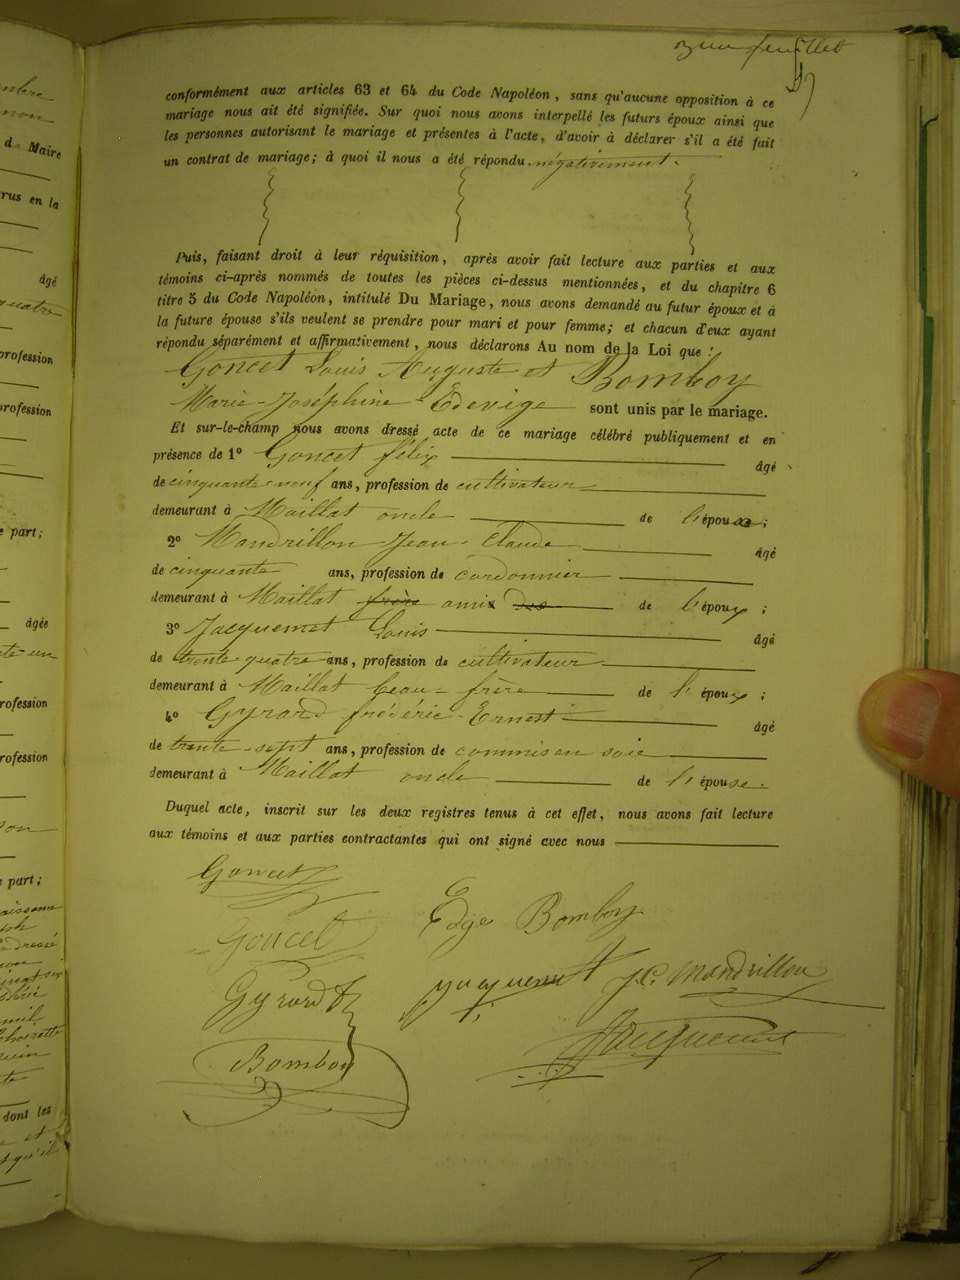 feuillet
conformément aux articles 63 et 64 du Code Napoléon, sans qu'aucune opposition à ce
mariage nous ait été signifiée. Sur quoi nous avons interpellé les futurs époux ainsi que
les personnes autorisant le mariage et présentes à l'acte, d'avoir à déclarer s'il a été fait
un contrat de mariage; à quoi il nous a été répondu négativement.
Puis, faisant droit à leur réquisition, après avoir fait lecture aux parties et aux
témoins ci-après nommés de toutes les pièces ci-dessus mentionnées, et du chapitre 6
titre 5 du Code Napoléon, intitulé Du Mariage, nous avons demandé au futur époux et à
la future épouse s'ils veulent se prendre pour mari et pour femme; et chacun d'eux ayant
répondu séparément et affirmativement, nous déclarons Au nom de la Loi que :
Goncet Louis Auguste et Bomboy
Marie-Joséphine-Edevige sont unis par le mariage.
Et sur-le-champ nous avons dressé acte de ce mariage célébré publiquement et en
présence de 1º Goncet félix âgé
de cinquante-neuf ans, profession de cultivateur
demeurant à Maillat oncle de l'époux;
2º Mandrillon Jean-Claude âgé
de cinquante ans, profession de cordonnier
demeurant à Maillat frère ami des de l'époux;
3º Jacquemet Louis âgé
de trente-quatre ans, profession de cultivateur
demeurant à Maillat beau-frère de l'époux;
4º Gyrard frédéric-Ernest âgé
de trente-sept ans, profession de commis en soie
demeurant à Maillat oncle de l'épouse.
Duquel acte, inscrit sur les deux registres tenus à cet effet, nous avons fait lecture
aux témoins et aux parties contractantes qui ont signé avec nous
Goncet
Edge Bomboy
Goncet
Gyrard f
Jacquemet
J. C. Mandrillon
Bomboy
Jacquemet
mbre
d. Maire
rus en la
âgé
quatre
profession
profession
e part;
âgée
rofession
rofession
e part;
dont les